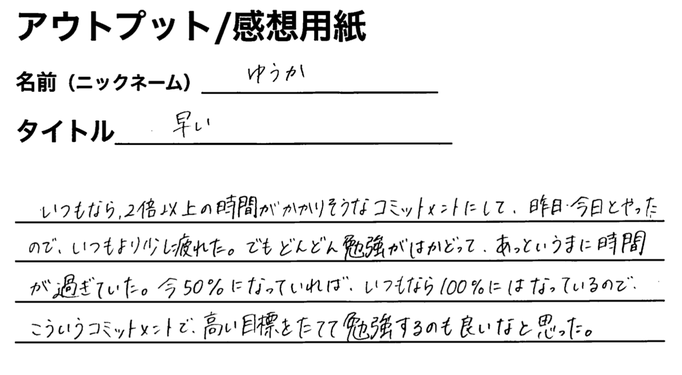 アウトプット/感想用紙
名前（ニックネーム） ゆうか
タイトル 早い
いつもなら、2倍以上の時間がかかりそうなコミットメントにして、昨日・今日とやった
ので、いつもより少し疲れた。でもどんどん勉強がはかどって、あっというまに時間
が過ぎていた。今50%になっていれば、いつもなら100%にはなっているので、
こういうコミットメントで、高い目標をたてて勉強するのも良いなと思った。